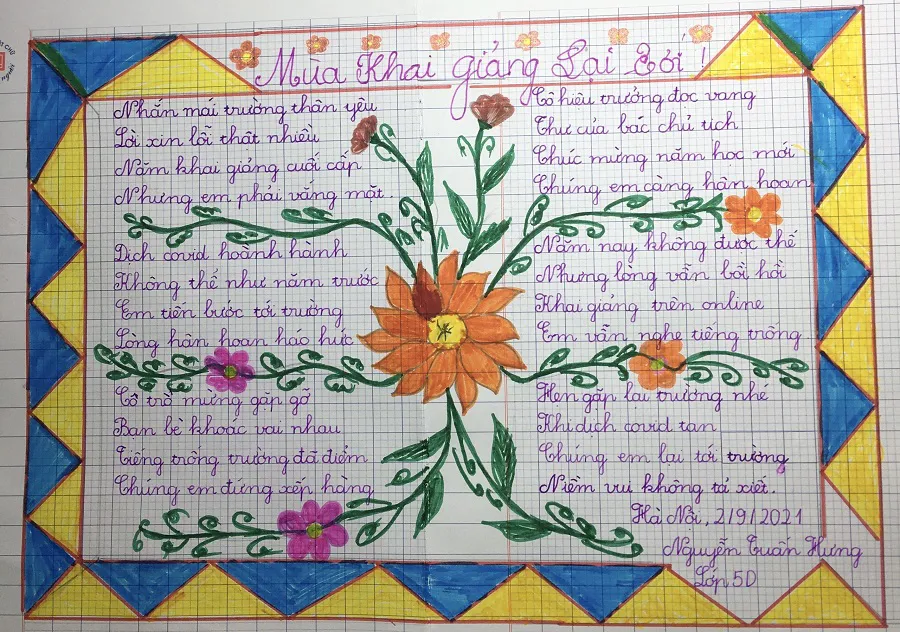 Mùa Khai giảng Lại Tới !
Nhắn mái trường thân yêu
Lời xin lỗi thật nhiều
Năm khai giảng cuối cấp
Nhưng em phải vắng mặt.
Dịch covid hoành hành
Không thể như năm trước
Em tiến bước tới trường
Lòng hân hoan háo hức
Cô trò mừng gặp gỡ
Bạn bè khoác vai nhau
Tiếng trống trường đã điểm
Chúng em đứng xếp hàng
Cô hiệu trưởng đọc vang
Thư của bác chủ tịch
Chúc mừng năm học mới
Chúng em càng hân hoan
Năm nay không được thế
Nhưng lòng vẫn bồi hồi
Khai giảng trên online
Em vẫn nghe tiếng trống
Hẹn gặp lại trường nhé
Khi dịch covid tan
Chúng em lại tới trường
Niềm vui không tả xiết.
Hà Nội, 2/9/2021
Nguyễn Tuấn Hưng
Lớp 5D